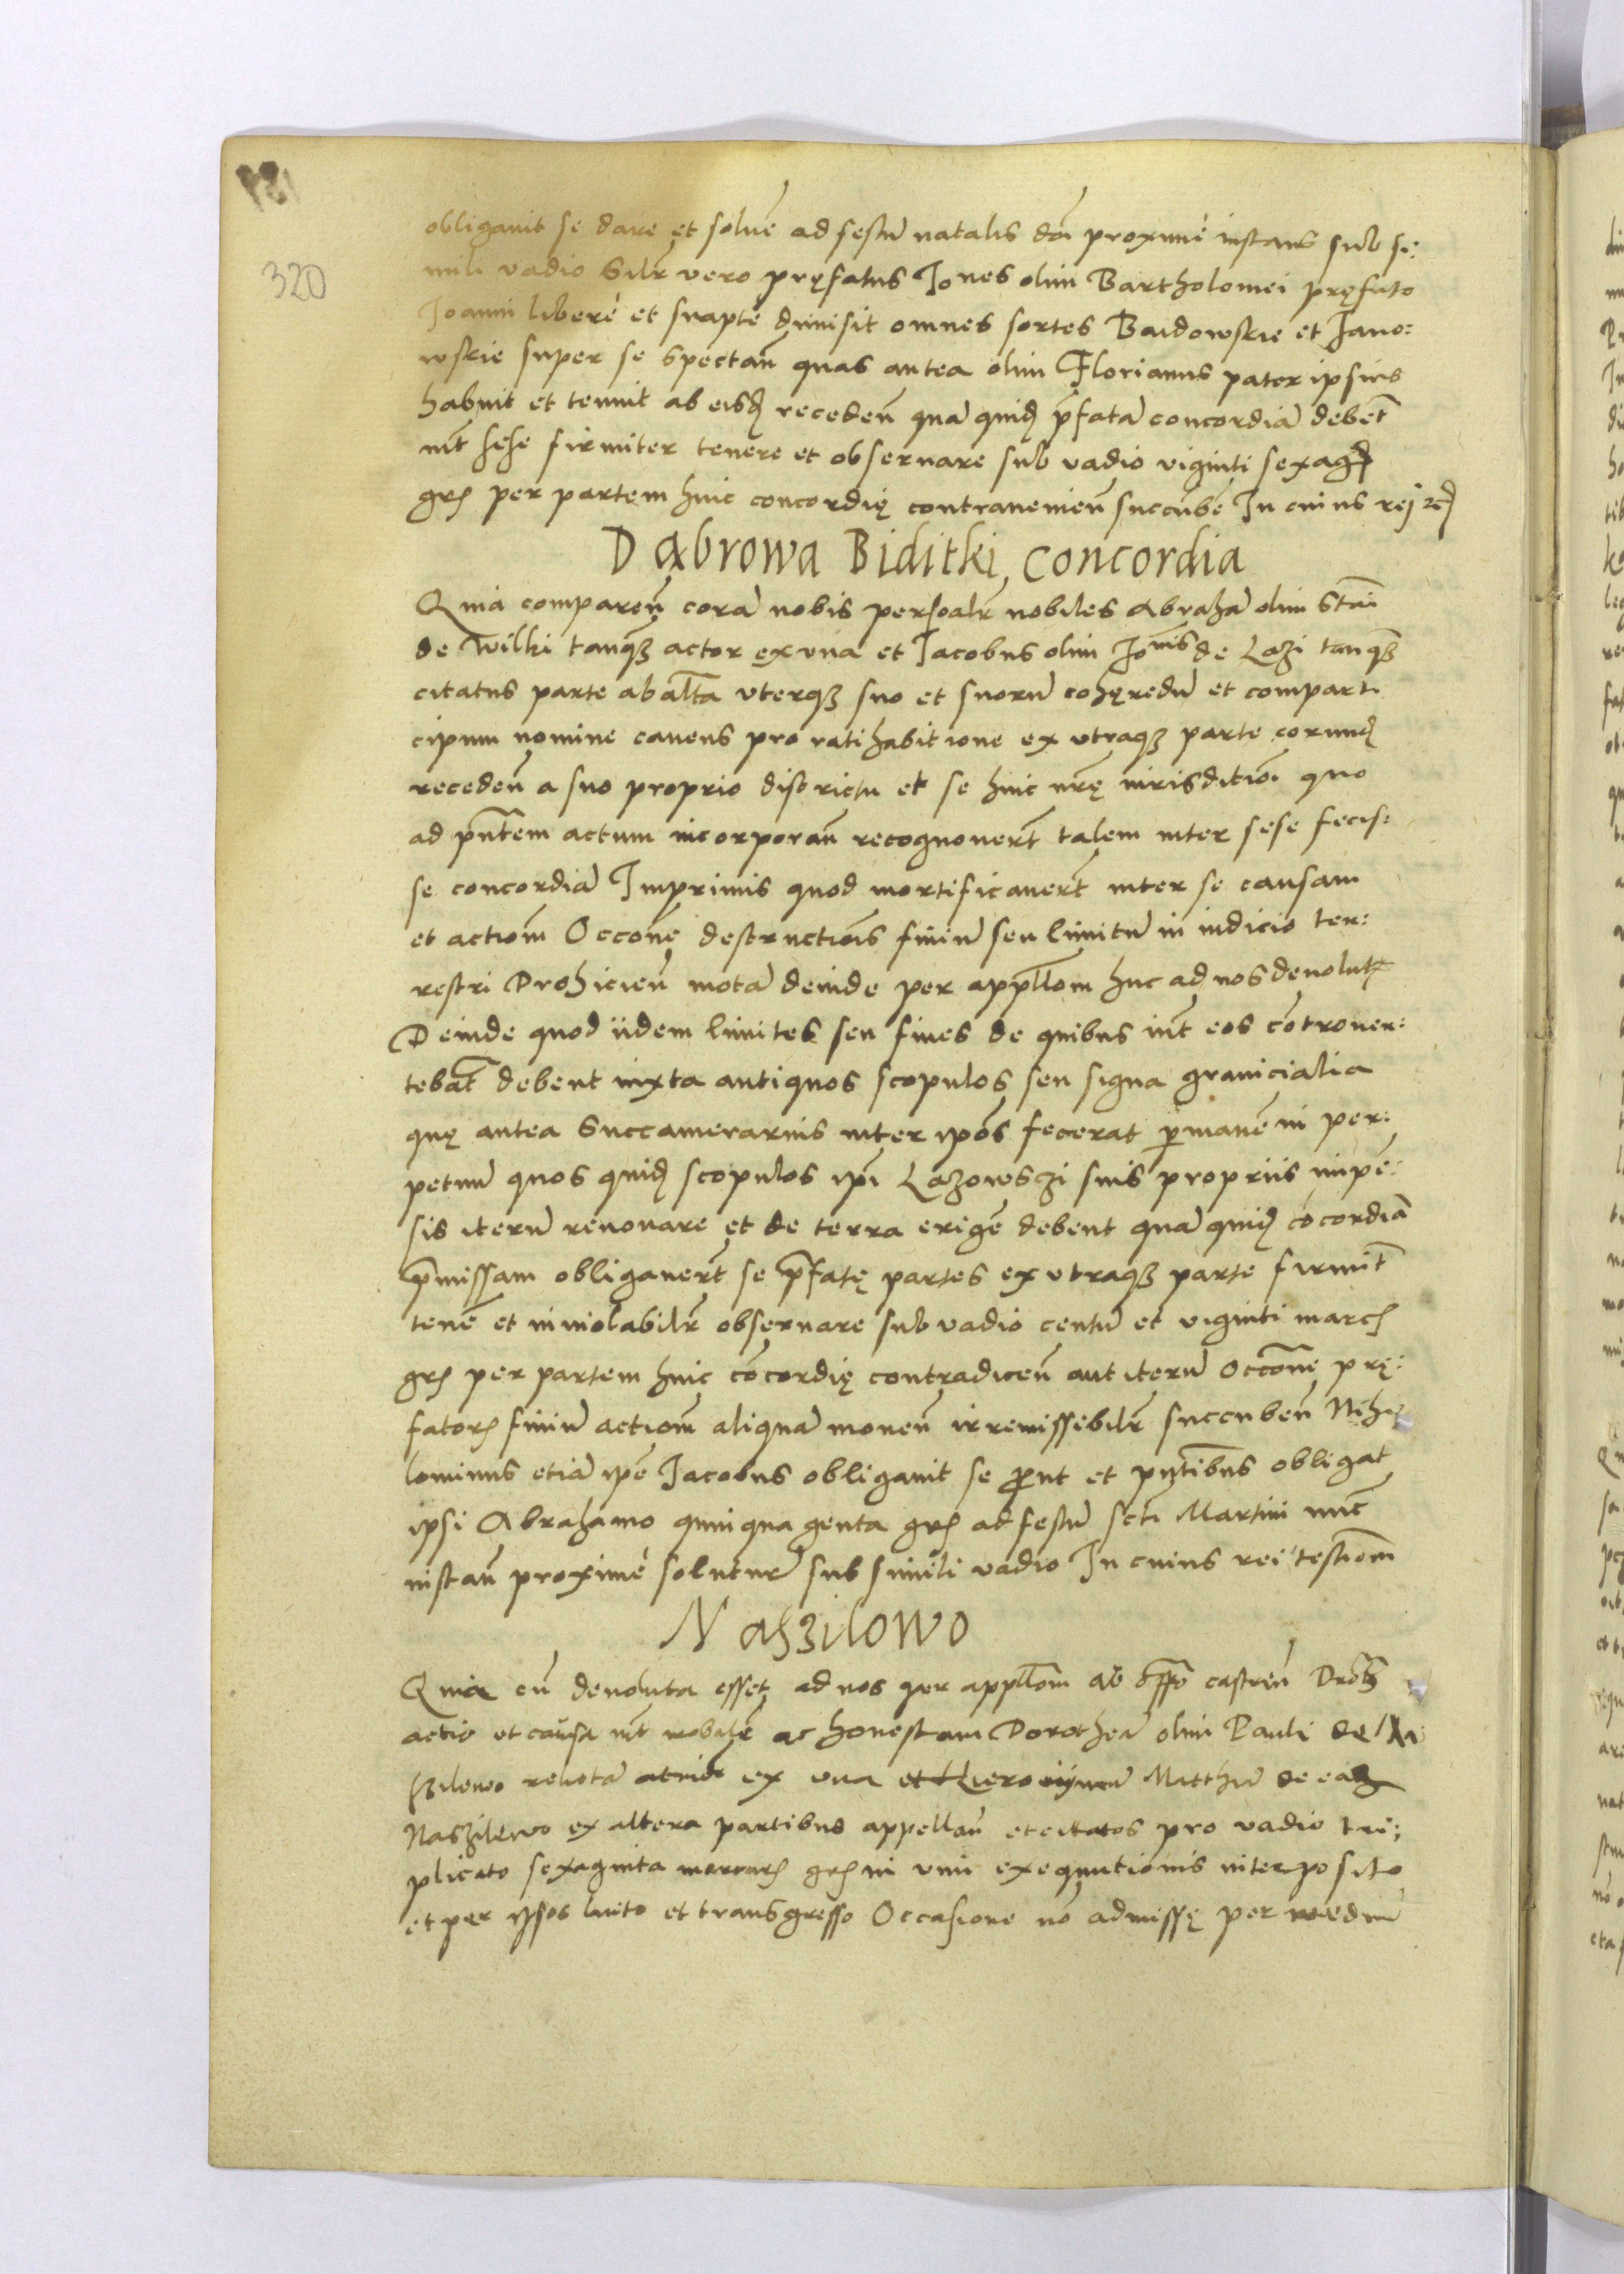 320
obligavit se dare et solvē ad festū natalis dni proxime instans sub si:
mili vadio Silr vero pręfatus Joānes olim Bartholomei pręfato
Joanni liberè et suaptè dimisit omnes sortes Baidowskie et Jano:
wskie super se spectan̄ quas antea olim Florianus pater ipsius
habuit et tenuit ab eisd receden̄ quā quid p̄fatā concordiā debet̄
int̄ sese firmiter tenere et observare sub vadio viginti sexag
gr per partem huic concordię contravenien̄ succūbē In cuius rej
Dąbrowa Biditki concordia
Quia comparen̄ corā nobis personalr̄ nobiles Abrahā olim Stāi
de Wilki tanqȝ actor ex una et Jacobus olim Joānis de Lazi tanqȝ
citatus parte ab altā uterqȝ suo et suorū cohęredū et comparti
cipum nomine cavens pro ratihabitione ex utraqȝ parte eorund
receden̄ a suo proprio districtu et se huic nrę iurisditiōi quo
ad pn̄tem actum incorporan̄ recognovert̄ talem inter sese fecis:
se concordiā Imprimis quod mortificavert̄ inter se causam
et actiom̄ Occōne destructiōis finiū seu limitū in iudicio ter:
restri Drohicien̄ motā deinde per appllom̄ huc ad nos devolut
Deinde quod iidem limites seu fines de quibus int̄ eos cōtrover:
tebat̄ debent iuxta antiquos scopulos seu signa granicialia
quę antea Succamerarius inter ipōs fecerat p̄manē in per:
petuū quos quid scopulos ipī Lazowszi suis propriis impē:
sis iterū renovare et de terra erigē debent quā quid cōcordiā
p̄missam obligavert̄ se p̄fatę partes ex utraqȝ parte firmit̄
tenē et inviolabilr̄ observare sub vadio centū et viginti marc
gr per partem huic cōcordię contradicen̄ aut iterū occōne prę:
fator finiū actiom̄ aliquā moven̄ irremissebilr̄ succuben̄ Nihi
lominus etiā ipē Jacobus obligavit se p̄ut et pn̄tibus obligat
ipsi Abrahamo quinquagenta gr ad festū scti Martini nūc
instan̄ proximè soluturū sub simili vadio In cuius rei testiom̄
Naszilowo
Quia cū devoluta esset ad nos per appllom̄ ab offo castren̄ Droh
actio et causa int̄ nobilē ac honestam Dorotheā olim Pauli de Na
szilowo relictā ex una et Matthiā de ead
Naszilewo ex altera partibus appellan̄ et citatos pro vadio tri:
plicato sexaginta marcar gr in vim exequutionis interposito
et per ipsos luito et transgresso Occasione nō admissę per